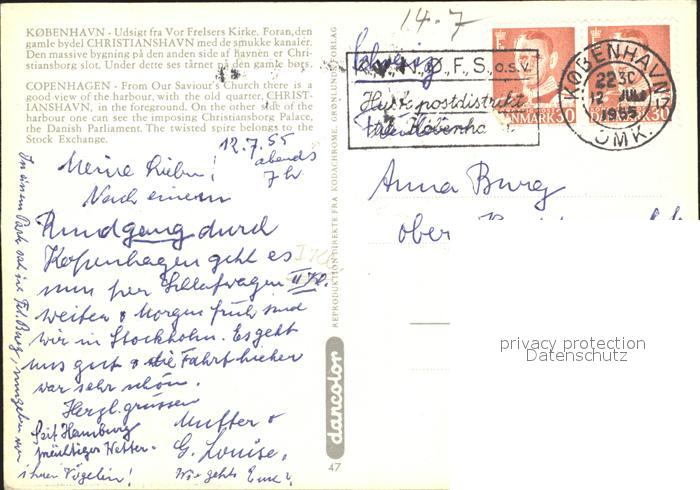 KØBENHAVN - Udsigt fra Vor Frelsers Kirke. Foran, den
gamle bydel CHRISTIANSHAVN med de smukke kanaler.
Den massive bygning på den anden side af havnen er Chri-
stiansborg slot. Under dette ses tårnet på den gamle børs.
COPENHAGEN - From Our Saviour's Church there is a
good view of the harbour, with the old quarter, CHRIST-
IANSHAVN, in the foreground. On the other side of the
harbour one can see the imposing Christiansborg Palace,
the Danish Parliament. The twisted spire belongs to the
Stock Exchange.
12.7.55
abends
7 h
Meine Lieben!
Nach einem
Rundgang durch
Kopenhagen geht es
nun per Schlafwagen II Kl.
weiter & Morgen früh sind
wir in Stockholm. Es geht
uns gut & die Fahrt hieher
war sehr schön.
Herzl. grüssen
Mutter &
G. Louise.
Wie gehts Euch?
Seit Hamburg
prächtiges Wetter.
In einem Park sah ich Frl. Burg, umgeben von
ihren Vögelein!
REPRODUKTION DIREKTE FRA KODACHROME. GRØNLUNDS FORLAG
dancolor
47
14.-7
Ø.F.S. o.s.v.
Husk postdistrikt
København
DANMARK 30
DANMARK 30
KØBENHAVN 17
22 30
12 JULI
1955
OMK.
Anna Burg
ober
privacy protection
Datenschutz